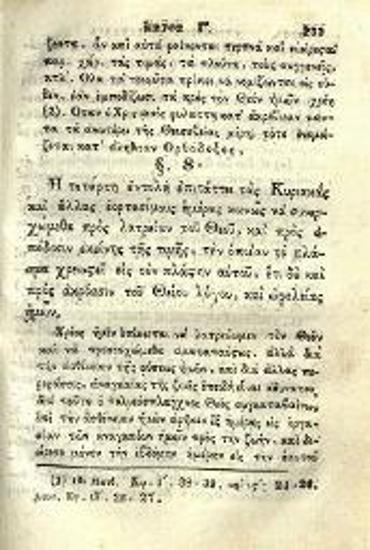 Κεφα Γʹ.
ζωντα, ἂν καὶ αὐτὰ φαίνωνται τερπνὰ καὶ
τὰς τιμὰς, τὰ πλούτη, τοὺς συγγενεῖς,
κτλ. Ὅλα τὰ τοιαῦτα πρέπει νὰ νομίζωνται ὡς οὐ-
δὲν, ἐὰν ἐμποδίζωσι τὰ πρὸς τὸν Θεὸν ἡμῶν χρέη
(2). Ὅταν ὁ Χριστιανὸς φυλάττῃ κατ' ἀκρίβειαν πάντα
τὰ ἀνωτέρω τῆς Θεοσεβείας μέρη, τότε ὀνομά-
ζεται κατ' ἀλήθειαν Ὀρθόδοξος.
§. 8.
Ἡ τετάρτη ἐντολὴ ἐπιτάττει τὰς Κυριακὰς
καὶ ἄλλας ἑορτασίμους ἡμέρας κοινῶς νὰ συνερ-
χώμεθα πρὸς λατρείαν τοῦ Θεοῦ, καὶ πρὸς ἀ-
πόδοσιν ἐκείνης τῆς τιμῆς, τὴν ὁποίαν τὸ πλά-
σμα χρεωστεῖ εἰς τὸν πλάστην αὐτοῦ, ἔτι δὲ καὶ
πρὸς ἀκρόασιν τοῦ Θείου λόγου, καὶ ὠφελείας
ἡμῶν.
Χρέος ἡμῖν ἐπίκειται νὰ λατρεύωμεν τὸν Θεὸν
καὶ νὰ προσευχώμεθα ἀκαταπαύστως, ἀλλὰ διὰ
τὴν ἀσθένειαν τῆς φύσεως ἡμῶν, καὶ διὰ ἄλλας πε-
ριστάσεις, ἀναγκαίας τῆς ζωῆς ἐπειδὴ εἶναι ἀδύνατον,
διὰ τοῦτο ὁ πολυεύσπλαγχνος Θεὸς συγκαταβαίνων
εἰς τὴν ἀσθένειαν ἡμῶν ἀφίνει ἓξ ἡμέρας εἰς ἐργα-
σίαν τῶν ἀναγκαίων ἡμῶν πρὸς τὴν ζωήν, καὶ
μόνον τὴν ἑβδόμην ἡμέραν εἰς τὴν
Κφ. Γʹ. 38-39.
Λουκ. Κφ. ΙΔʹ. 26-27.